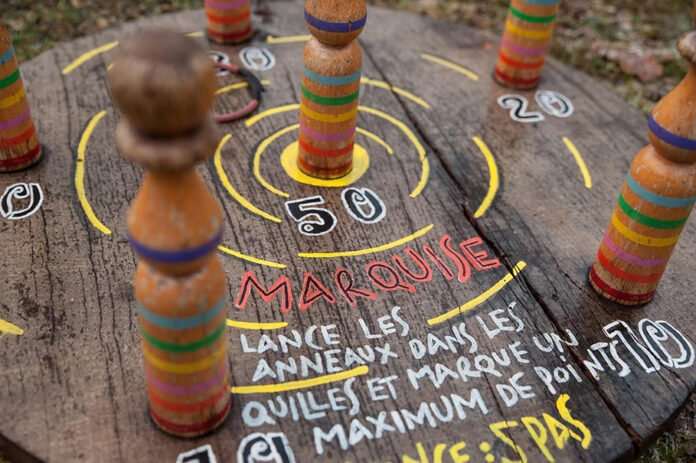 20
50
MARQUISE
LANCE LES
ANNEAUX DANS LES
QUILLES ET MARQUE UN
MAXIMUM DE POINTS
10
: 5 PAS
10